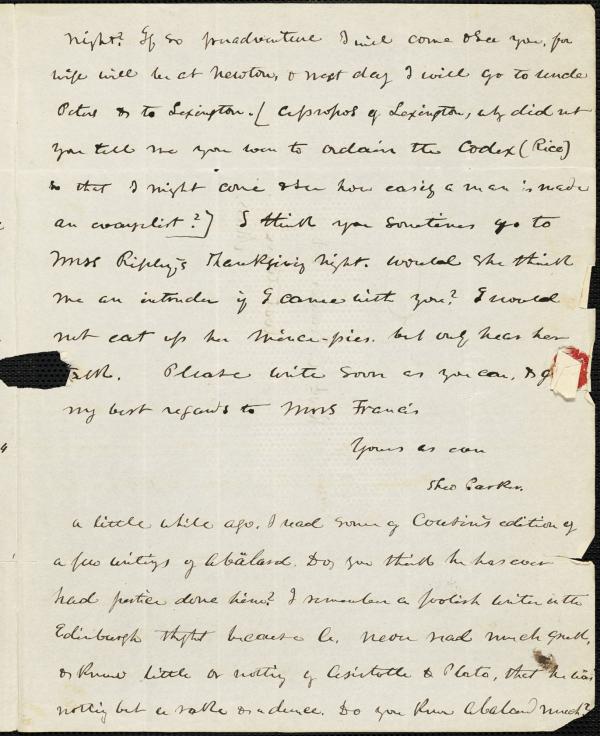 night? If so peradventure I will come & see you, for
wife will be at Newton, & next day I will go to Uncle
Peters & to Lexington. [Apropos of Lexington, why did not
you tell me you were to ordain the Codex (Rice)
so that I might come & see how easily a man is made
an evangelist?] I think you sometimes go to
Mrss Ripley's Thanksgiving night. Would she think
me an intruder if I came with you? I would
not eat up her mince-pies. but only hear her
talk. Please write soon as you can, &
my best regards to Mrss Francis
Yours as ever
Theo Parker.
a little while ago, I read some of Cousin's edition of
a few writings of Abälard. Do you think he has ever
had justice done him? I remember a foolish writer in the
Edinburgh thght because A. never read much Greek,
& knew little or nothing of Aristotle & Plato, that he was
nothing but a rake & a dunce. Do you know Abälard much?